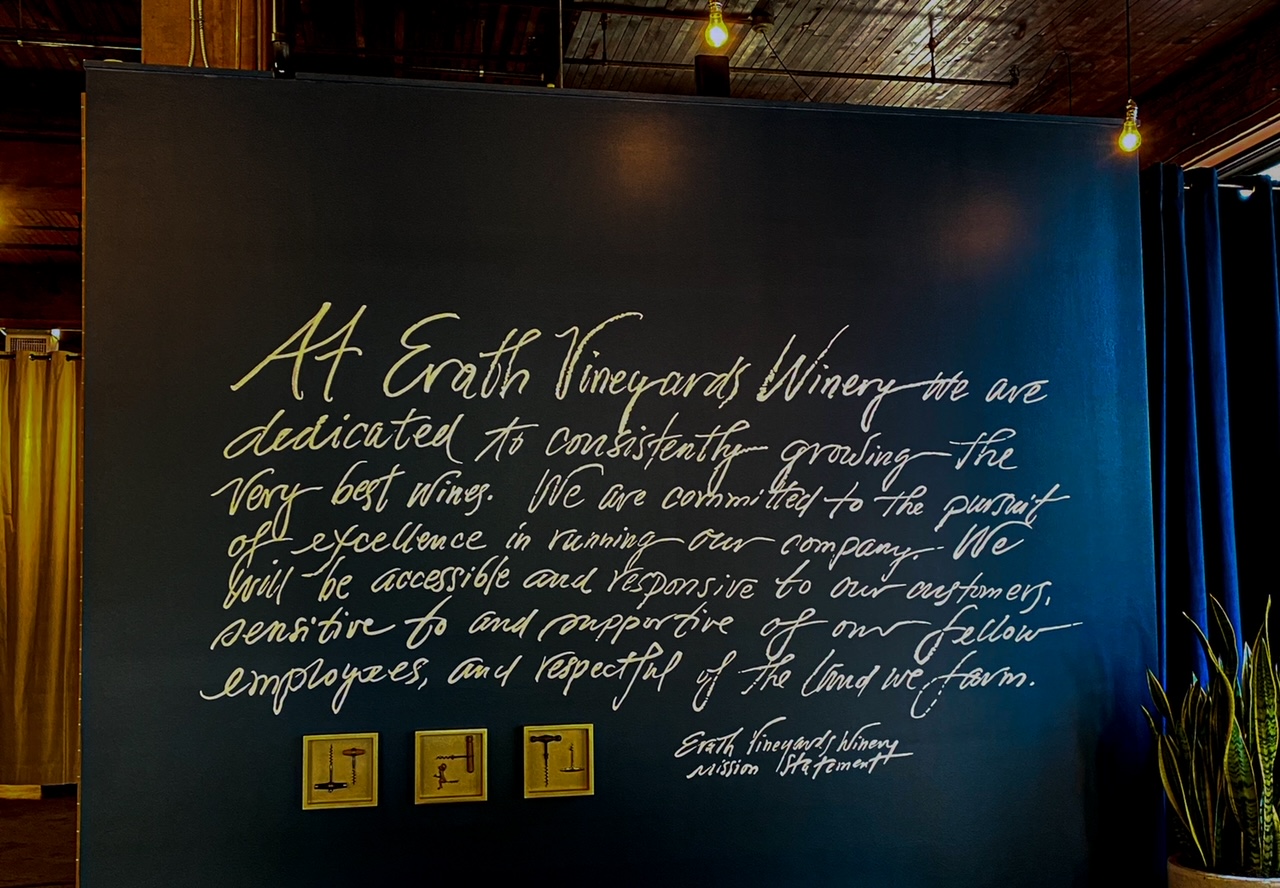 At Erath Vineyards Winery we are
dedicated to consistently growing the
very best wines. We are committed to the pursuit
of excellence in running our company. We
will be accessible and responsive to our customers,
sensitive to and supportive of our fellow
employees, and respectful of the land we farm.
Erath Vineyards Winery
Mission Statement